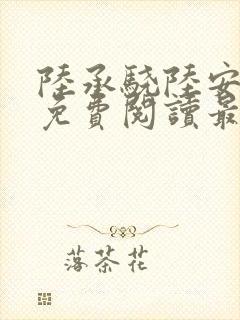 陸承驍陸安
免費閱讀最
落茶花